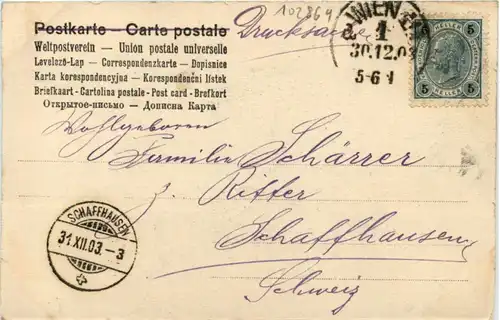 102864
Postkarte — Carte postale
Drucksache
Weltpostverein — Union postale universelle
Levelező-Lap — Correspondenzkarte — Dopisnice
Karta korespondencyjna — Korespondenční lístek
Briefkaart - Cartolina postale - Post card - Brefkort
Открытое-письмо — Дописна Карта
WIEN
1
30.12.03
5-6
5 5
HELLER HELLER
5 5
Wohlgeboren
Familie Schärrer
z. Ritter
Schaffhausen
Schweiz
SCHAFFHAUSEN
31.XII.03.-3